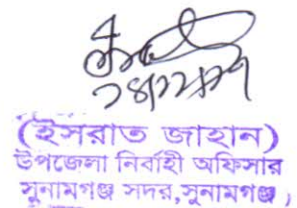 (ইসরাত জাহান)
উপজেলা নির্বাহী অফিসার
সুনামগঞ্জ সদর,সুনামগঞ্জ,